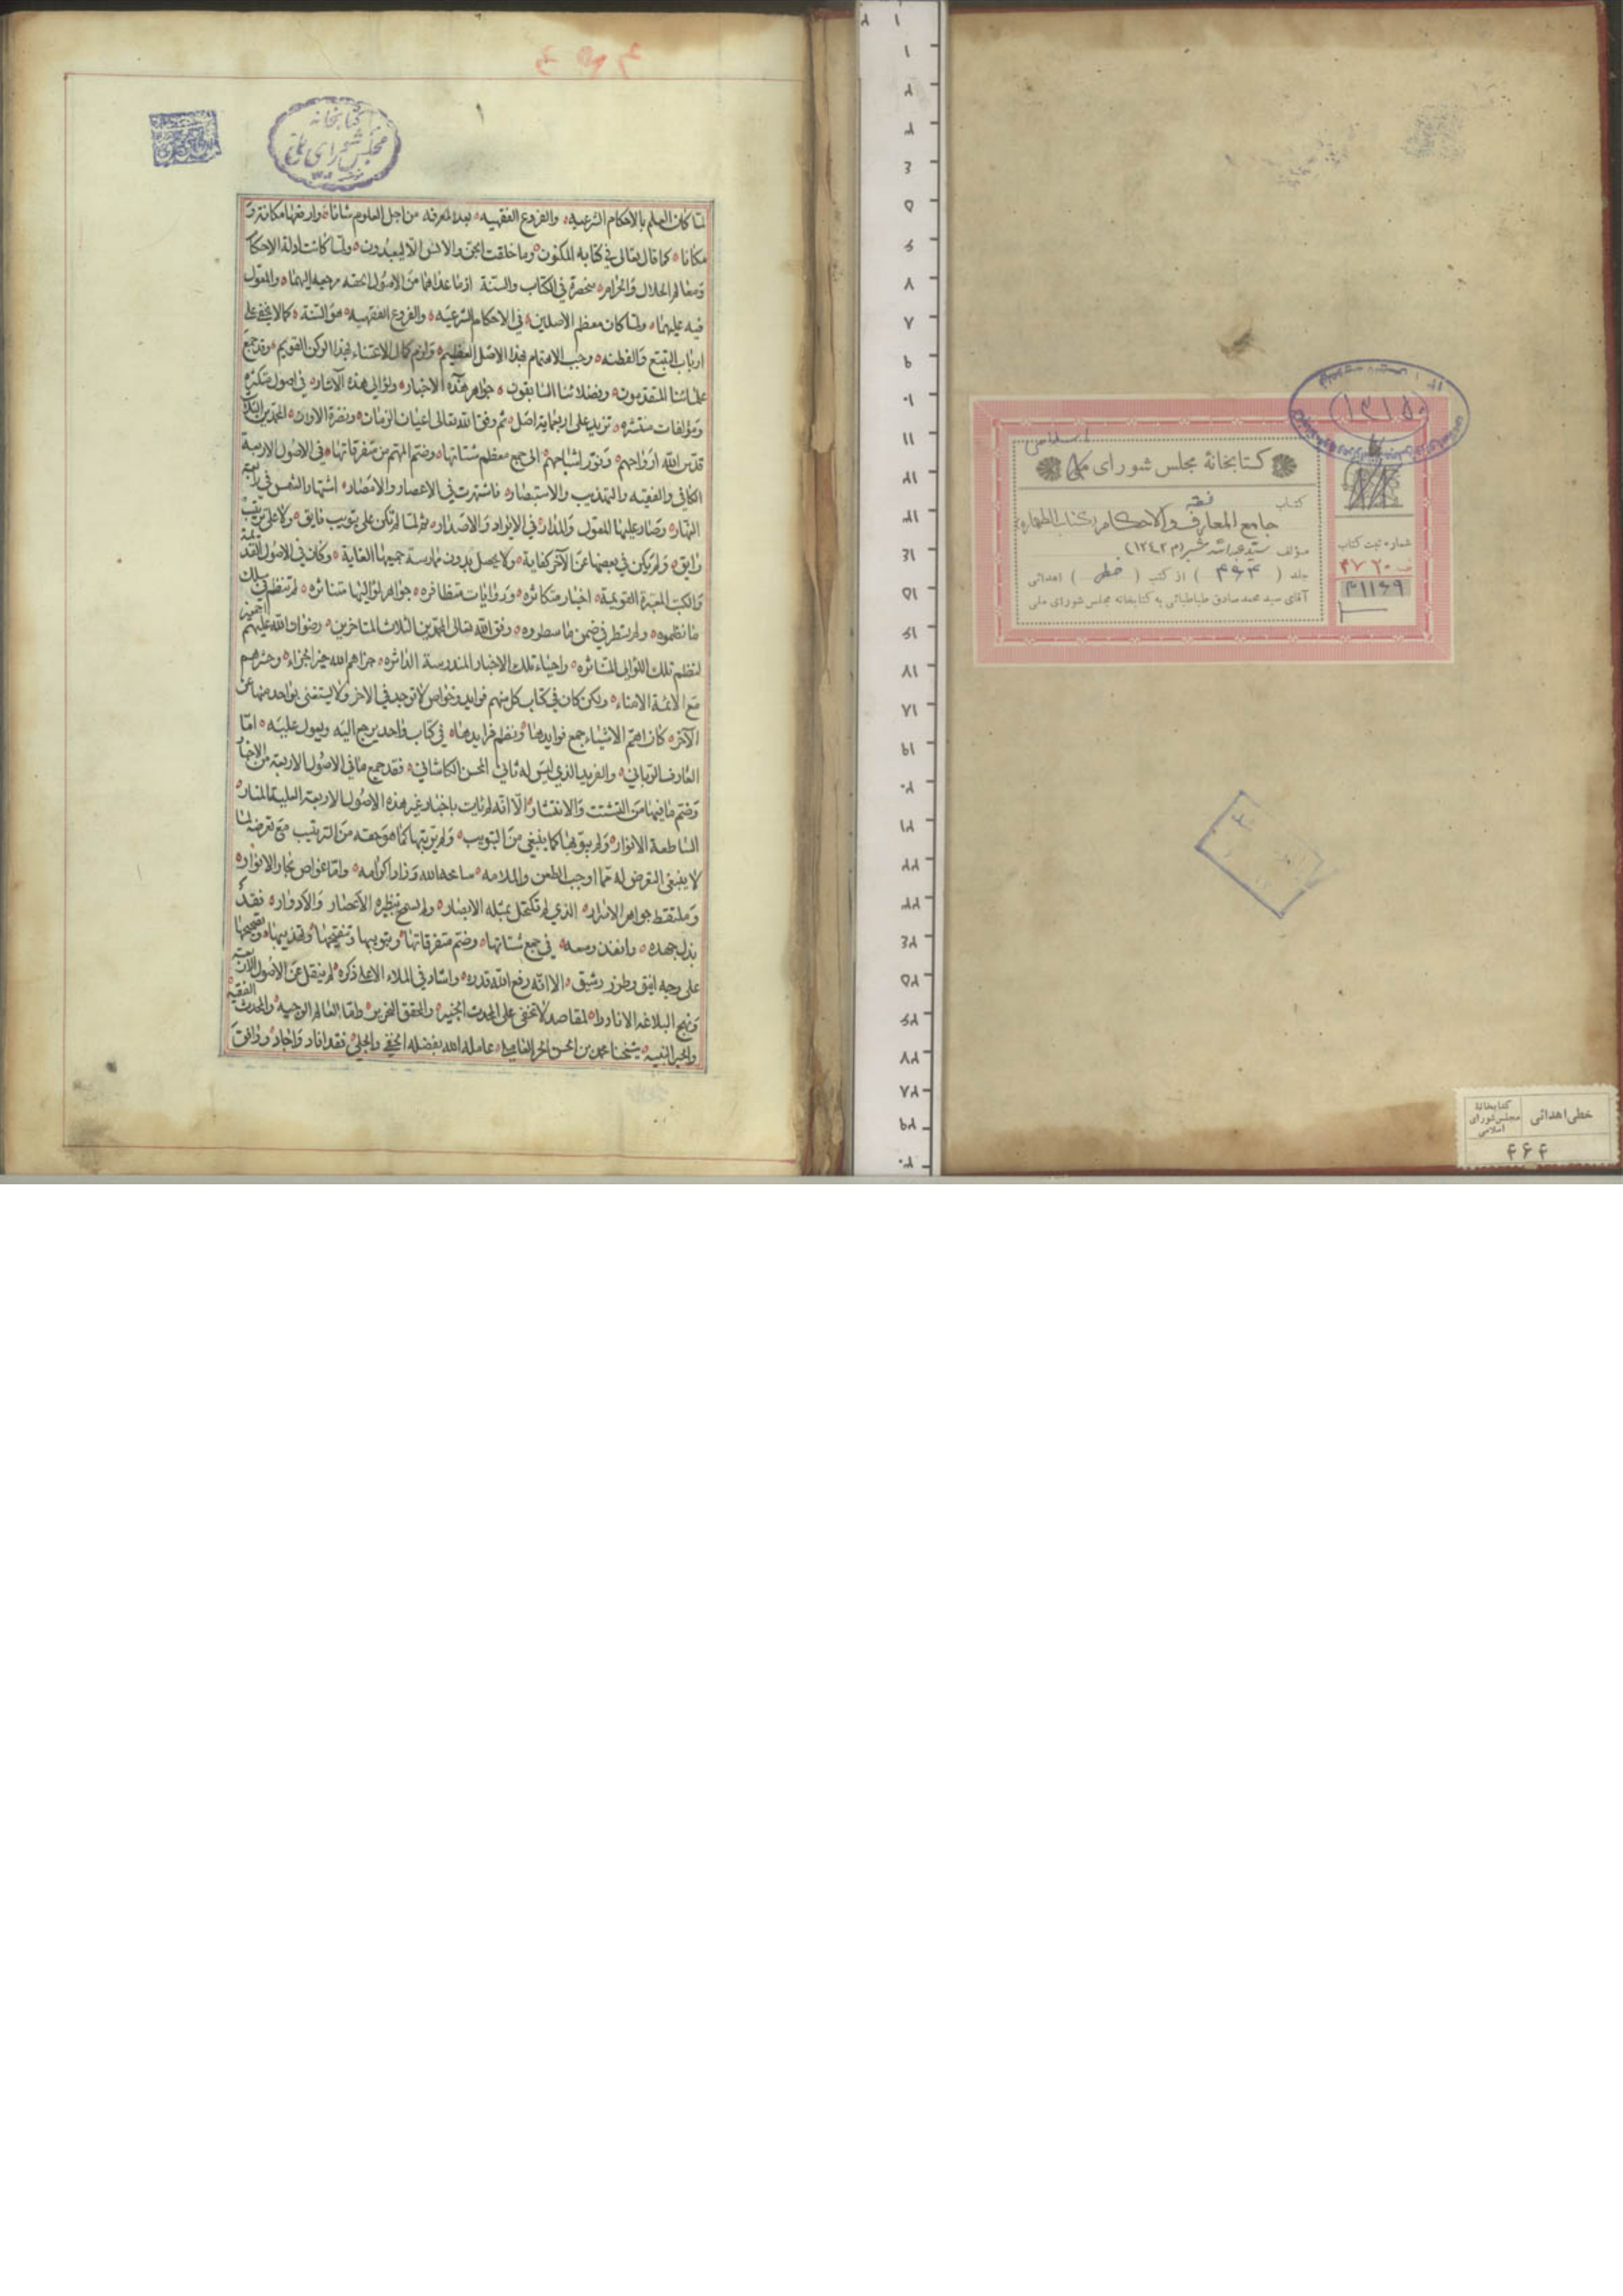 کتابخانهٔ مجلس شورای ملی
اسلامی
کتاب فقه
جامع المعارف والاحکام (کتاب الطهاره)
مؤلف سید عبدالله شبر (م ۱۲۴۲)
جلد ( ۴۶۴ ) از کتب ( خطی ) اهدائی
آقای سید محمد صادق طباطبائی به کتابخانه مجلس شورای ملی
شماره ثبت کتاب
۳۱۱۶۹
۱۳۱۵۰
خطی اهدائی
کتابخانهٔ
مجلس شورای
اسلامی
۴۶۴
کتابخانه
مجلس شورای ملی
لما کان العلم بالاحکام الشرعیه والفروع الفقهیه بعد المعرفه من اجل العلوم شانا وارفعها مکانة و
مکانا کما قال تعالی فی کتابه المکنون وما خلقت الجن والانس الا لیعبدون ولما کانت ادلة الاحکام
ومعالم الحلال والحرام منحصرة فی الکتاب والسنة اذ ما عداهما من الاصول الحقه مرجعه الیهما والمعول
فیه علیهما ولما کان معظم الاصلین فی الاحکام الشرعیه والفروع الفقهیه هو السنة کما لا یخفی علی
ارباب التتبع والفطنه وجب الاهتمام بهذا الاصل العظیم ولزم کمال الاعتناء بهذا الرکن القویم وقد جمع
علمائنا المتقدمون وفضلائنا السابقون جواهر هذه الاخبار ولؤالی هذه الآثار فی اصول متکثره
ومؤلفات منتشره تزید علی اربعمایة اصل ثم وفق الله تعالی اعیان الزمان ونضرة الاوان المحمدین الثلاثة
قدس الله ارواحهم ونور اشباحهم الی جمع معظم شتاتها وضم المهم من متفرقاتها فی الاصول الاربعة
الکافی والفقیه والتهذیب والاستبصار فاشتهرت فی الاعصار والامصار اشتهار الشمس فی رابعة
النهار وصار علیها المعول والمدار فی الایراد والاصدار ثم لما لم تکن علی تبویب فایق ولا علی ترتیب
رایق ولم یکن فی بعضها عن الآخر کفایة ولا یحصل بدون ممارسة جمیعها الغایة وکان فی الاصول القدیمة
والکتب المعتبرة القویمة اخبار متکاثره وروایات متظافره جواهر لؤالیها متناثره لم تنتظم فی سلک
ما نظموه ولم یسطر فی ضمن ما سطروه وفق الله تعالی المحمدین الثلاث المتاخرین رضوان الله علیهم اجمعین
لنظم تلک اللؤالی المتناثره واحیاء تلک الاخبار المندرسة الداثره جزاهم الله خیر الجزاء وحشرهم
مع الائمة الامناء ولکن کان فی کتاب کل منهم فواید وخواص لا توجد فی الاخر ولا یستغنی بواحد منها عن
الآخر کان اهم الاشیاء جمع فوایدها ونظم فرایدها فی کتاب واحد یرجع الیه ویعول علیه اما
العارف الربانی والفرید الذی لیس له ثانی المحسن الکاشانی فقد جمع ما فی الاصول الاربعة من الاخبار
وضم ما فیها من التشتت والانتشار الا انه لم یات باخبار غیر هذه الاصول الاربعة العلیة المنار
الساطعة الانوار ولم یبوبها کما ینبغی من التبویب ولم یرتبها کما هو حقه من الترتیب مع تعرضه لما
لا ینبغی التعرض له مما اوجب الطعن والملامه سامحه الله وزاد اکرامه واما غواص بحار الانوار
وملتقط جواهر الاسرار الذی لم تکتحل بمثله الابصار ولم تسمح بنظیره الاعصار والادوار فقد
بذل جهده وانفذ وسعه فی جمع شتاتها وضم متفرقاتها وتبویبها وتنقیحها وتهذیبها وتصحیحها
علی وجه انیق وطرز رشیق الا انه رفع الله قدره واشاد فی الملاء الاعلی ذکره لم ینقل عن الاصول الاربعة
ونهج البلاغه الا نادرا لمقاصد لا تخفی علی المحدث الخبیر والمحقق النحریر واما العالم الوجیه والمحدث الفقیه
والحبر النبیه شیخنا محمد بن الحسن الحر العاملی عامله الله بفضله الخفی والجلی فقد افاد واجاد